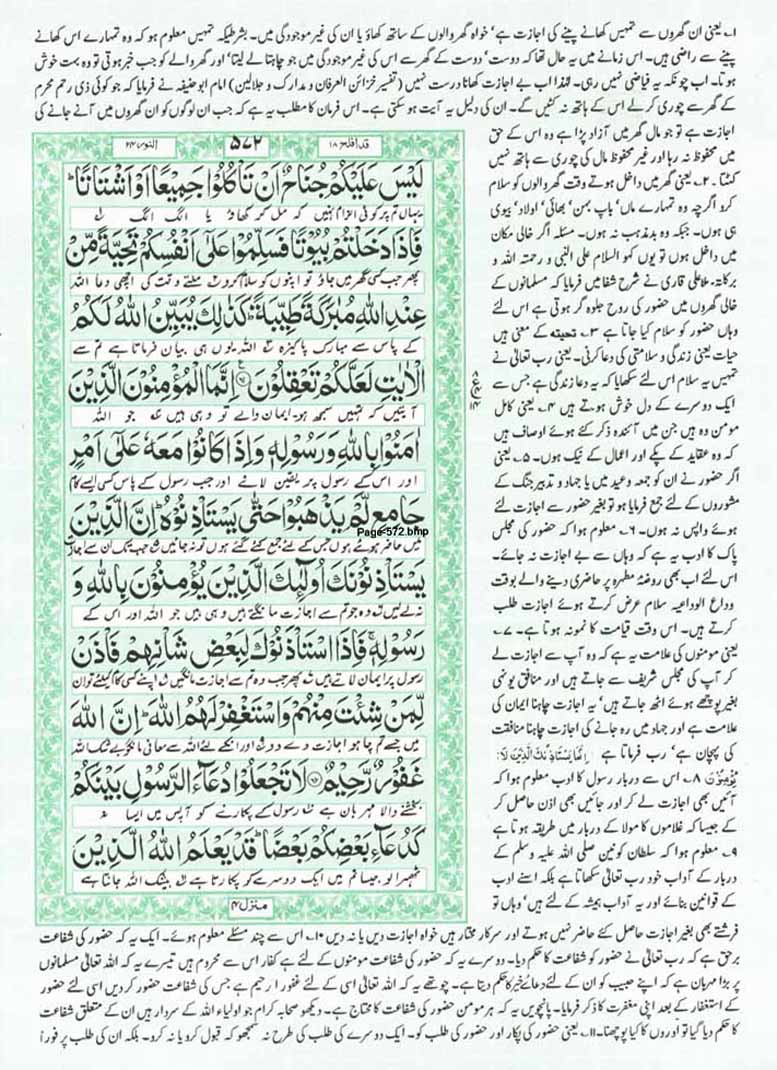 ۱۔ یعنی ان گھروں سے تمہیں کھانے پینے کی اجازت ہے، خواہ گھر والوں کے ساتھ کھاؤ یا ان کی غیر موجودگی میں۔ بشرطیکہ تمہیں معلوم ہو کہ وہ تمہارے اس کھانے
پینے سے راضی ہیں۔ اس زمانے میں یہ حال تھا کہ دوست، دوست کے گھر سے اس کی غیر موجودگی میں جو چاہتا لے لیتا، اور گھر والے کو جب خبر ہوتی تو وہ بہت خوش
ہوتا۔ اب چونکہ یہ فیاضی نہیں رہی۔ لہٰذا اب بے اجازت کھانا درست نہیں (تفسیر خزائن العرفان و مدارک و جلالین) امام ابو حنیفہ نے فرمایا کہ جو کوئی ذی رحم محرم
کے گھر سے چوری کرلے اس کے ہاتھ نہ کٹیں گے۔ ان کی دلیل یہ آیت ہو سکتی ہے۔ اس فرمان کا مطلب یہ ہے کہ جب ان لوگوں کو ان گھروں میں آنے جانے کی
اجازت ہے تو جو مال گھر میں آزاد پڑا ہے وہ اس کے حق
میں محفوظ نہ رہا اور غیر محفوظ مال کی چوری سے ہاتھ نہیں
کٹتا۔ ۲۔ یعنی گھر میں داخل ہوتے وقت گھر والوں کو سلام
کرو اگرچہ وہ تمہارے ماں، باپ بہن، بھائی، اولاد، بیوی
ہی ہوں۔ جبکہ وہ بدمذہب نہ ہوں۔ مسئلہ اگر خالی مکان
میں داخل ہوں تو یوں کہو السلام علی النبی و رحمتہ اللہ و
برکاتہ۔ ملا علی قاری نے شرح شفا میں فرمایا کہ مسلمانوں کے
خالی گھروں میں حضور کی روح جلوہ گر ہوتی ہے اس لئے
وہاں حضور کو سلام کیا جاتا ہے ۳۔ تحیتہ کے معنی ہیں
حیات یعنی زندگی و سلامتی کی دعا کرنی۔ یعنی رب تعالیٰ نے
تمہیں یہ سلام اس لئے سکھایا کہ یہ دعا زندگی ہے جس سے
ایک دوسرے کے دل خوش ہوتے ہیں ۴۔ یعنی کامل
مومن وہ ہیں جن میں آئندہ ذکر کئے ہوئے اوصاف ہیں
کہ وہ عقاید کے پکے اور اعمال کے نیک ہوں۔ ۵۔ یعنی
اگر حضور نے ان کو جمعہ و عید میں یا جہاد و تدبیر جنگ کے
مشوروں کے لئے جمع فرمایا ہو تو بغیر حضور سے اجازت لئے
ہوئے واپس نہ ہوں۔ ۶۔ معلوم ہوا کہ حضور کی مجلس
پاک کا ادب یہ ہے کہ وہاں سے بے اجازت نہ جائے۔
اس لئے اب بھی روضۂ مطہرہ پر حاضری دینے والے بوقت
وداع الوداعیہ سلام عرض کرتے ہوئے اجازت طلب
کرتے ہیں۔ اس وقت قیامت کا نمونہ ہوتا ہے۔ ۷۔
یعنی مومنوں کی علامت یہ ہے کہ وہ آپ سے اجازت لے
کر آپ کی مجلس شریف سے جاتے ہیں اور منافق یونہی
بغیر پوچھے ہوئے اٹھ جاتے ہیں، یہ اجازت چاہنا ایمان کی
علامت ہے اور جہاد میں رہ جانے کی اجازت چاہنا منافقت
کی پہچان ہے، رب فرماتا ہے اِنَّمَا یَسْتَاْذِنُکَ الَّذِیْنَ لَا
یُؤْمِنُوْنَ ۸۔ اس سے دربار رسول کا ادب معلوم ہوا کہ
آئیں بھی اجازت لے کر اور جائیں بھی اذن حاصل کر
کے جیسا کہ غلاموں کا مولا کے دربار میں طریقہ ہوتا ہے
۹۔ معلوم ہوا کہ سلطان کونین صلی اللہ علیہ وسلم کے
دربار کے آداب خود رب تعالیٰ سکھاتا ہے بلکہ اسنے ادب
کے قوانین بنائے اور یہ آداب ہمیشہ کے لئے ہیں، وہاں تو
قد افلح ۱۸
۵۷۲
النور ۲۴
لَیْسَ عَلَیْکُمْ جُنَاحٌ اَنْ تَاْکُلُوْا جَمِیْعًا اَوْ اَشْتَاتًا ؕ
یہاں تم پر کوئی الزام نہیں کہ مل کر کھاؤ یا الگ الگ
فَاِذَا دَخَلْتُمْ بُیُوْتًا فَسَلِّمُوْا عَلٰۤی اَنْفُسِکُمْ تَحِیَّۃً مِّنْ
پھر جب کسی گھر میں جاؤ تو اپنوں کو سلام کرو ملتے وقت کی اچھی دعا اللہ
عِنْدِ اللّٰہِ مُبٰرَکَۃً طَیِّبَۃً ؕ کَذٰلِکَ یُبَیِّنُ اللّٰہُ لَکُمُ
کے پاس سے مبارک پاکیزہ اللہ یوں ہی بیان فرماتا ہے تم سے
الْاٰیٰتِ لَعَلَّکُمْ تَعْقِلُوْنَ اِنَّمَا الْمُؤْمِنُوْنَ الَّذِیْنَ
آیتیں کہ تمہیں سمجھ ہو۔ ایمان والے تو وہی ہیں جو اللہ
اٰمَنُوْا بِاللّٰہِ وَرَسُوْلِہٖ وَاِذَا کَانُوْا مَعَہٗ عَلٰۤی اَمْرٍ
اور اس کے رسول پر یقین لائے اور جب رسول کے پاس کسی ایسے کام
جَامِعٍ لَّمْ یَذْھَبُوْا حَتّٰی یَسْتَاْذِنُوْہُ ؕ اِنَّ الَّذِیْنَ
Page-572.bmp
میں حاضر ہوئے ہوں جس کے لئے جمع کئے گئے ہوں تو نہ جائیں جب تک ان سے اجازت
یَسْتَاْذِنُوْنَکَ اُولٰٓئِکَ الَّذِیْنَ یُؤْمِنُوْنَ بِاللّٰہِ وَ
نہ لے لیں وہ جو تم سے اجازت مانگتے ہیں وہی ہیں جو اللہ اور اس کے
رَسُوْلِہٖ ۚ فَاِذَا اسْتَاْذَنُوْکَ لِبَعْضِ شَاْنِہِمْ فَاْذَنْ
رسول پر ایمان لاتے ہیں پھر جب وہ تم سے اجازت مانگیں اپنے کسی کام کیلئے تو ان
لِّمَنْ شِئْتَ مِنْہُمْ وَاسْتَغْفِرْ لَہُمُ اللّٰہَ ؕ اِنَّ اللّٰہَ
میں جسے تم چاہو اجازت دے دو اور انکے لئے اللہ سے معافی مانگو بے شک اللہ
غَفُوْرٌ رَّحِیْمٌ لَا تَجْعَلُوْا دُعَآءَ الرَّسُوْلِ بَیْنَکُمْ
بخشنے والا مہربان ہے رسول کے پکارنے کو آپس میں ایسا نہ
کَدُعَآءِ بَعْضِکُمْ بَعْضًا ؕ قَدْ یَعْلَمُ اللّٰہُ الَّذِیْنَ
ٹھہرا لو جیسا تم میں ایک دوسرے کو پکارتا ہے بیشک اللہ جانتا ہے
منزل ۴
فرشتے بھی بغیر اجازت حاصل کئے حاضر نہیں ہوتے اور سرکار مختار ہیں خواہ اجازت دیں یا نہ دیں ۱۰۔ اس سے چند مسئلے معلوم ہوئے۔ ایک یہ کہ حضور کی شفاعت
برحق ہے کہ رب تعالیٰ نے حضور کو شفاعت کا حکم دیا۔ دوسرے یہ کہ حضور کی شفاعت مومنوں کے لئے ہے کفار اس سے محروم ہیں تیسرے یہ کہ اللہ تعالیٰ مسلمانوں
پر بڑا مہربان ہے کہ اپنے حبیب کو ان کے لئے دعائے خیر کا حکم دیتا ہے۔ چوتھے یہ کہ اللہ تعالیٰ اسی کے لئے غفور رحیم ہے جس کی شفاعت حضور کر دیں اسی لئے حضور
کے استغفار کے بعد اپنی مغفرت کا ذکر فرمایا۔ پانچویں یہ کہ ہر مومن حضور کی شفاعت کا محتاج ہے۔ دیکھو صحابہ کرام جو اولیاء اللہ کے سردار ہیں ان کے متعلق شفاعت
کا حکم دیا گیا تو اوروں کا کیا پوچھنا۔ ۱۱۔ یعنی حضور کی پکار اور حضور کی طلب کو۔ ایک دوسرے کی طلب کی طرح نہ سمجھو کہ قبول کرو یا نہ کرو۔ بلکہ ان کی طلب پر فوراً